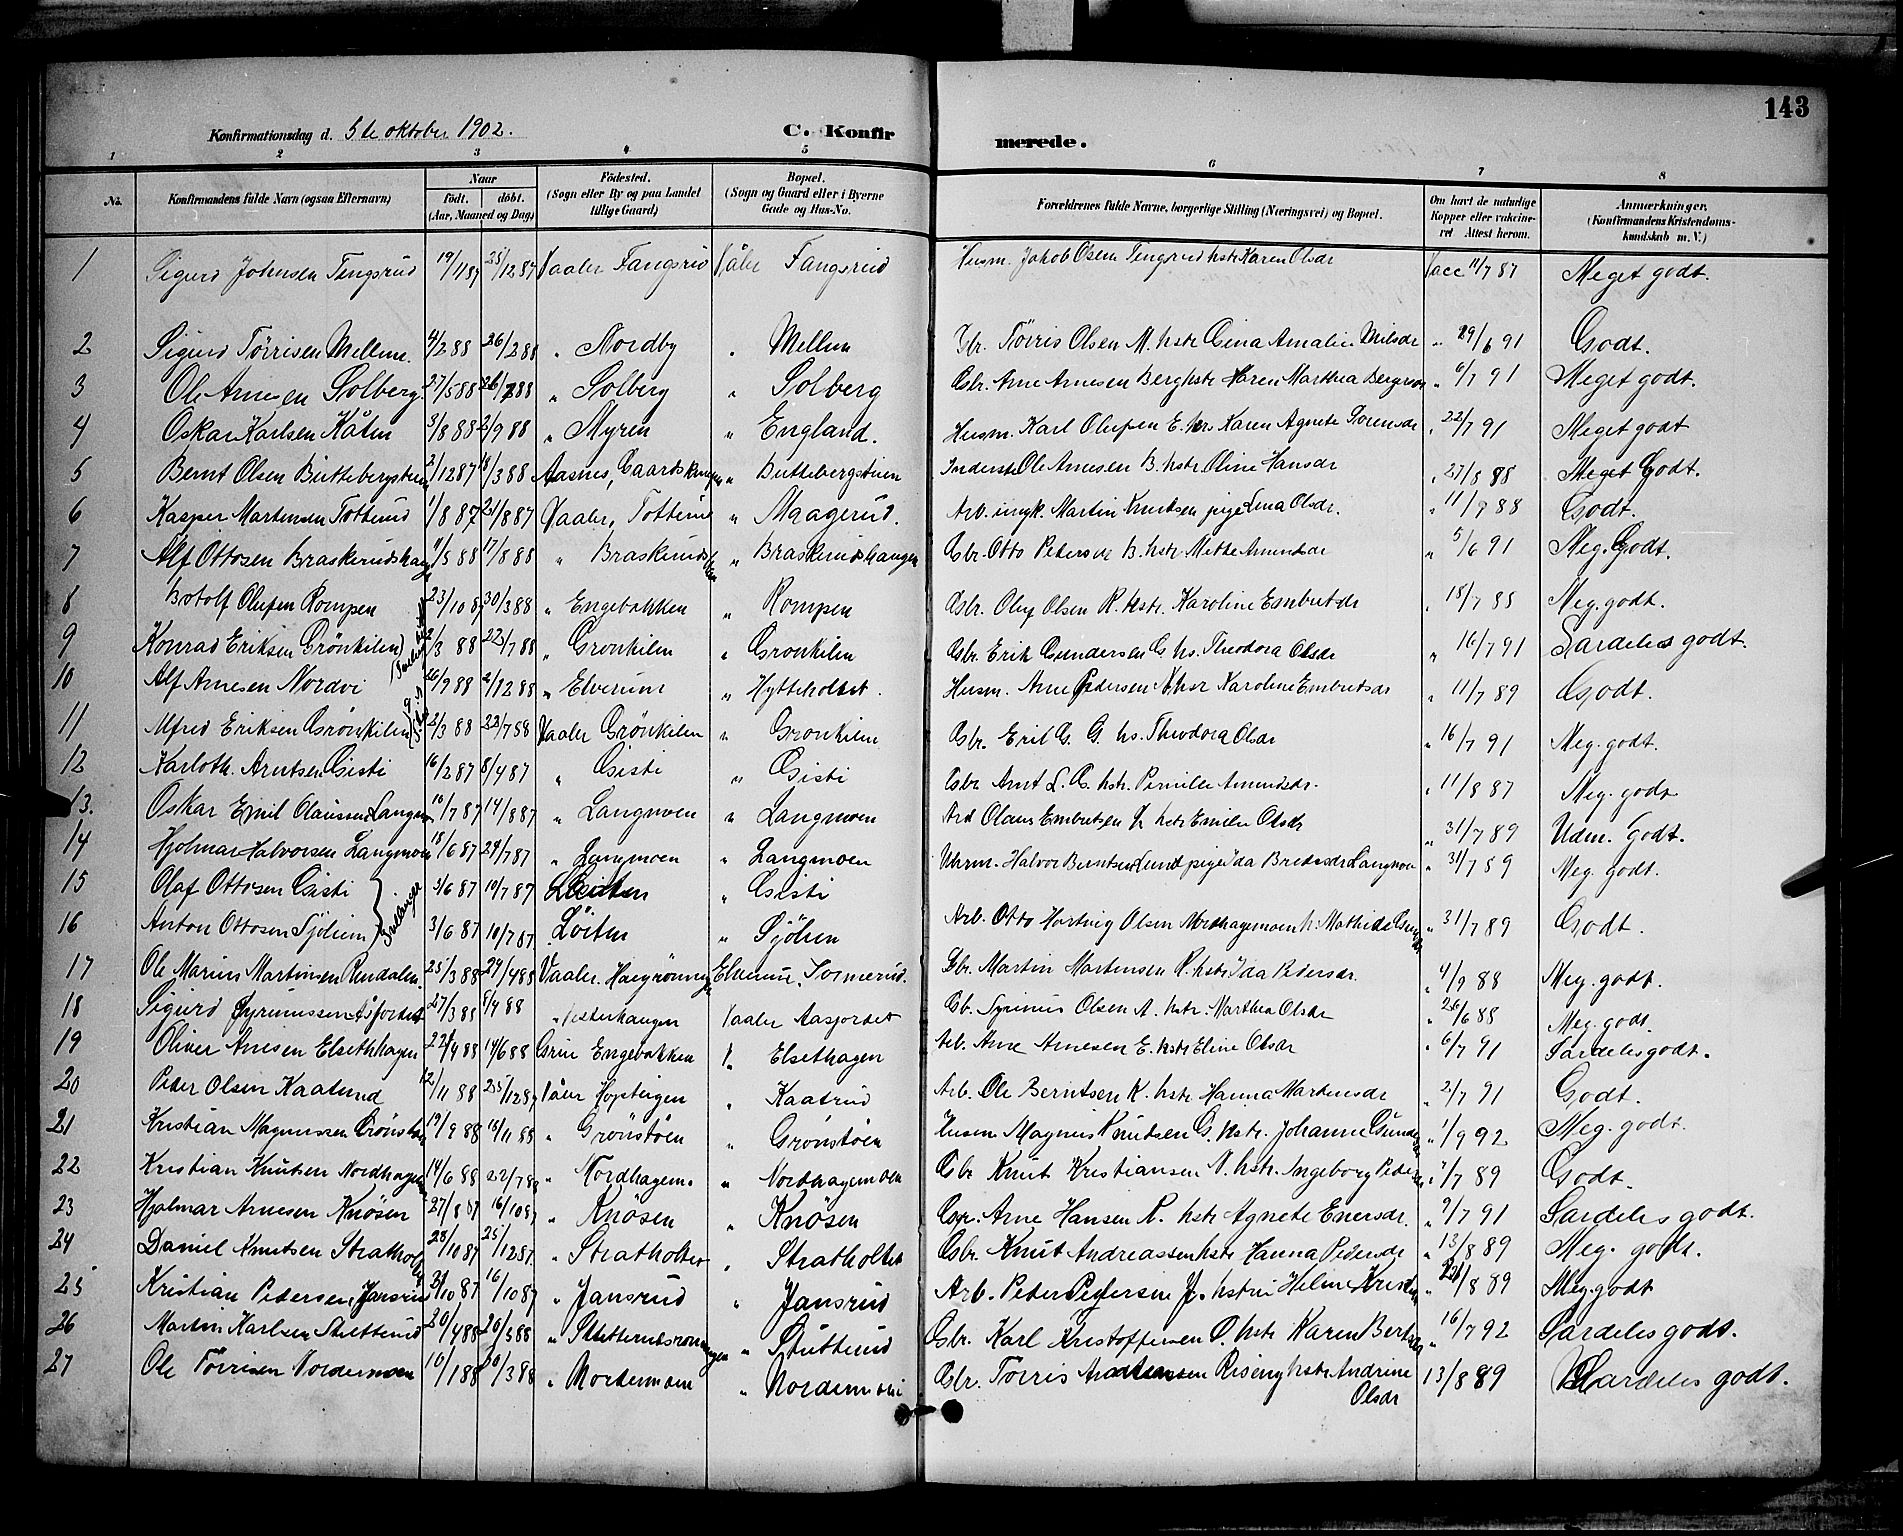 143
Konfirmationsdag d. 5te oktober 1902. C. Konfirmerede.
1 2 3 4 5 6 7 8
No. Konfirmandens fulde Navn (ogsaa Efternavn) Naar født. døbt. (Aar, Maaned og Dag) Fødested. (Sogn eller By og paa Landet tillige Gaard) Bopæl. (Sogn og Gaard eller i Byerne Gade og Hus-No. Forældrenes fulde Navne, borgerlige Stilling (Næringsvei) og Bopæl. Om havt de naturlige Kopper eller vakcineret Attest herom. Anmærkninger. (Konfirmandens Kristendomskundskab m. V.)
1 Sigurd Tengsrud 19/11 87 25/12 87 Vaaler Fangsrud Våler Fangsrud Husm. Jakob Olsen Tengsrud hstr Karen Olsdr Vacc 11/7 87 Meget godt.
2 Sigurd Törrisen Mellem. 4/2 88 26/2 88 " Nordby " Mellem Gbr. Törris Olsen M. hstr Gina Amalie Nilsdr " 29/6 91 Godt.
3 Ole Arnesen Solberg. 27/5 88 26/7 88 " Solberg " Solberg Gbr. Arne Arnesen Berg hstr Karen Marthea " 6/7 91 Meget godt.
4 Oskar Karlsen 3/8 88 2/9 88 " Myren " England. Husm. Karl Olufsen E. Karen Agnete " 22/7 91 Meget godt
5 Bernt Olsen Buttebergstuen 2/12 87 18/3 88 Aasnes, " Buttebergstuen Inderst Ole Arnesen B. hstr Oline Hansdr " 27/8 88 Meget Godt.
6 Kasper Martinsen Totterud 1/8 87 21/8 87 Vaaler, Totterud " Maagerud. Arb. ungk. Martin Knutsen pige Lena Olsdr. " 11/9 88 Godt.
7 Alf Ottosen Braskerudshagen 11/5 88 17/8 88 " " Braskerudshangen Gbr. Otto Pedersen B. hstr Mette Amundsdr " 5/6 91 Meg. Godt.
8 Botolf Olufsen Rompen 23/10 87 30/3 88 " Engebakken " Rompen Gbr. Oluf Olsen R. hstr. Karoline Embretsdr " 18/7 88 Meg. godt.
9 Konrad Eriksen Grönkilen 2/3 88 22/7 88 " Gronkilen " Gronkilen Gbr. Erik Gundersen G hs. Theodora Olsdr " 16/7 91 Særdeles godt.
10 Alf Arnesen Nordvi 26/9 88 2/12 88 " Elverum " Hytteholtet. Husm. Arne Pedersen N. hstr Karoline Embretsdr " 11/7 89 Godt.
11 Alfred Eriksen Grönkilen 2/3 88 22/7 88 Vaaler Grönkilen " Gronkilen Gbr. Erik G. G. hs. Theodora Olsdr " 16/7 91 Meg. godt.
12 Karloth. Arntsen Gisti 16/2 87 8/4 87 " Gisti " Gisti Gbr Arnt L. G. hstr. Pernille Amundsdr. " 11/8 87 Meg. godt
13. Oskar Emil Olaussen Langmoen 10/7 87 14/8 87 " Langmoen " Langmoen Olaus Embretsen L hstr Emilie Olsdr " 31/7 89 Udm. Godt.
14 Hjalmar Halvorsen Langmoen 18/6 87 24/7 87 " Langmoen " Langmoen Halvor Berntsen Lund pige Ida Langmoen " 31/7 89 Meg. godt.
15 Olaf Ottosen Gisti 3/6 87 10/7 87 Löiten " Gisti
16 Anton Ottosen Sjölien } Tvillinger 3/6 87 10/7 87 Löiten " Sjölien Arb. Otto Hartvig Olsen Nordhagenmoen h. Mathilde " 31/7 89 Godt.
17 Ole Marius Martinsen Rendalen. 25/3 88 29/4 88 Vaaler. Elverum, Sormerud. Gbr. Martin Martinsen R. hstr Ida Pedersdr. " 4/9 88 Meg. godt.
18 Sigurd Syrinussen Åsfordet 27/3 88 8/4 88 " Vesterhaugen Vaaler Aasfordet Gb. Syrinus Olsen A. hstr. Marthea Olsdr " 26/6 88 Meg. godt.
19 Oliver Arnesen Elsethhagen 22/4 88 14/6 88 Grue Engebakken V. Elsethagen Arb. Arne Arnesen E. hstr Eline Olsdr " 6/7 91 Særdeles godt.
20 Peder Olsen Kaaterud 12/11 88 25/12 87 Våler Hopsteigen " Kaatrud Arb. Ole Berntsen K. hstr Hanna Martinsdr " 2/7 91 Godt.
21 Kristian Magnussen Grönstöen 19/9 88 18/11 88 " Grönstöen " Grönstöen Husm Magnus Knutsen G. hstr. Johanne " 1/9 92 Meg. godt.
22 Kristian Knutsen Nordhagen 14/6 88 22/7 88 " Nordhagen. " Nordhagenmoen Gbr Knut Kristiansen N. hstr. Ingeborg " 1/7 89 Godt.
23 Hjalmar Arnesen Knösen 27/8 87 16/10 87 " Knösen " Knösen Gbr. Arne Hansen K. hstr Agnete Enersdr. " 9/7 91 Særdeles godt.
24 Daniel Knutsen Stratholtet 28/10 87 25/12 87. " Stratholtet " Stratholtet Gbr. Knut Andreassen hstr Hanna Pedersdr " 13/8 89 Meg. godt.
25 Kristian Pedersen Jansrud 21/10 87 16/10 87 " Jansrud " Jansrud Arb. Peder Pedersen J. hstru Helene " 21/8 89 Meg. godt
26 Martin Karlsen Stutterud 20/4 88 20/5 88 " " Stutterud Gbr. Karl Kristoffersen S. hstr Karen " 16/7 92 Særdeles godt.
27 Ole Törrisen Nordermoen 10/1 88 30/3 88 " Nordermoen " Nordermoen Gbr. Törris Riseng hstr Andrine Olsdr 13/8 89 Særdeles godt.